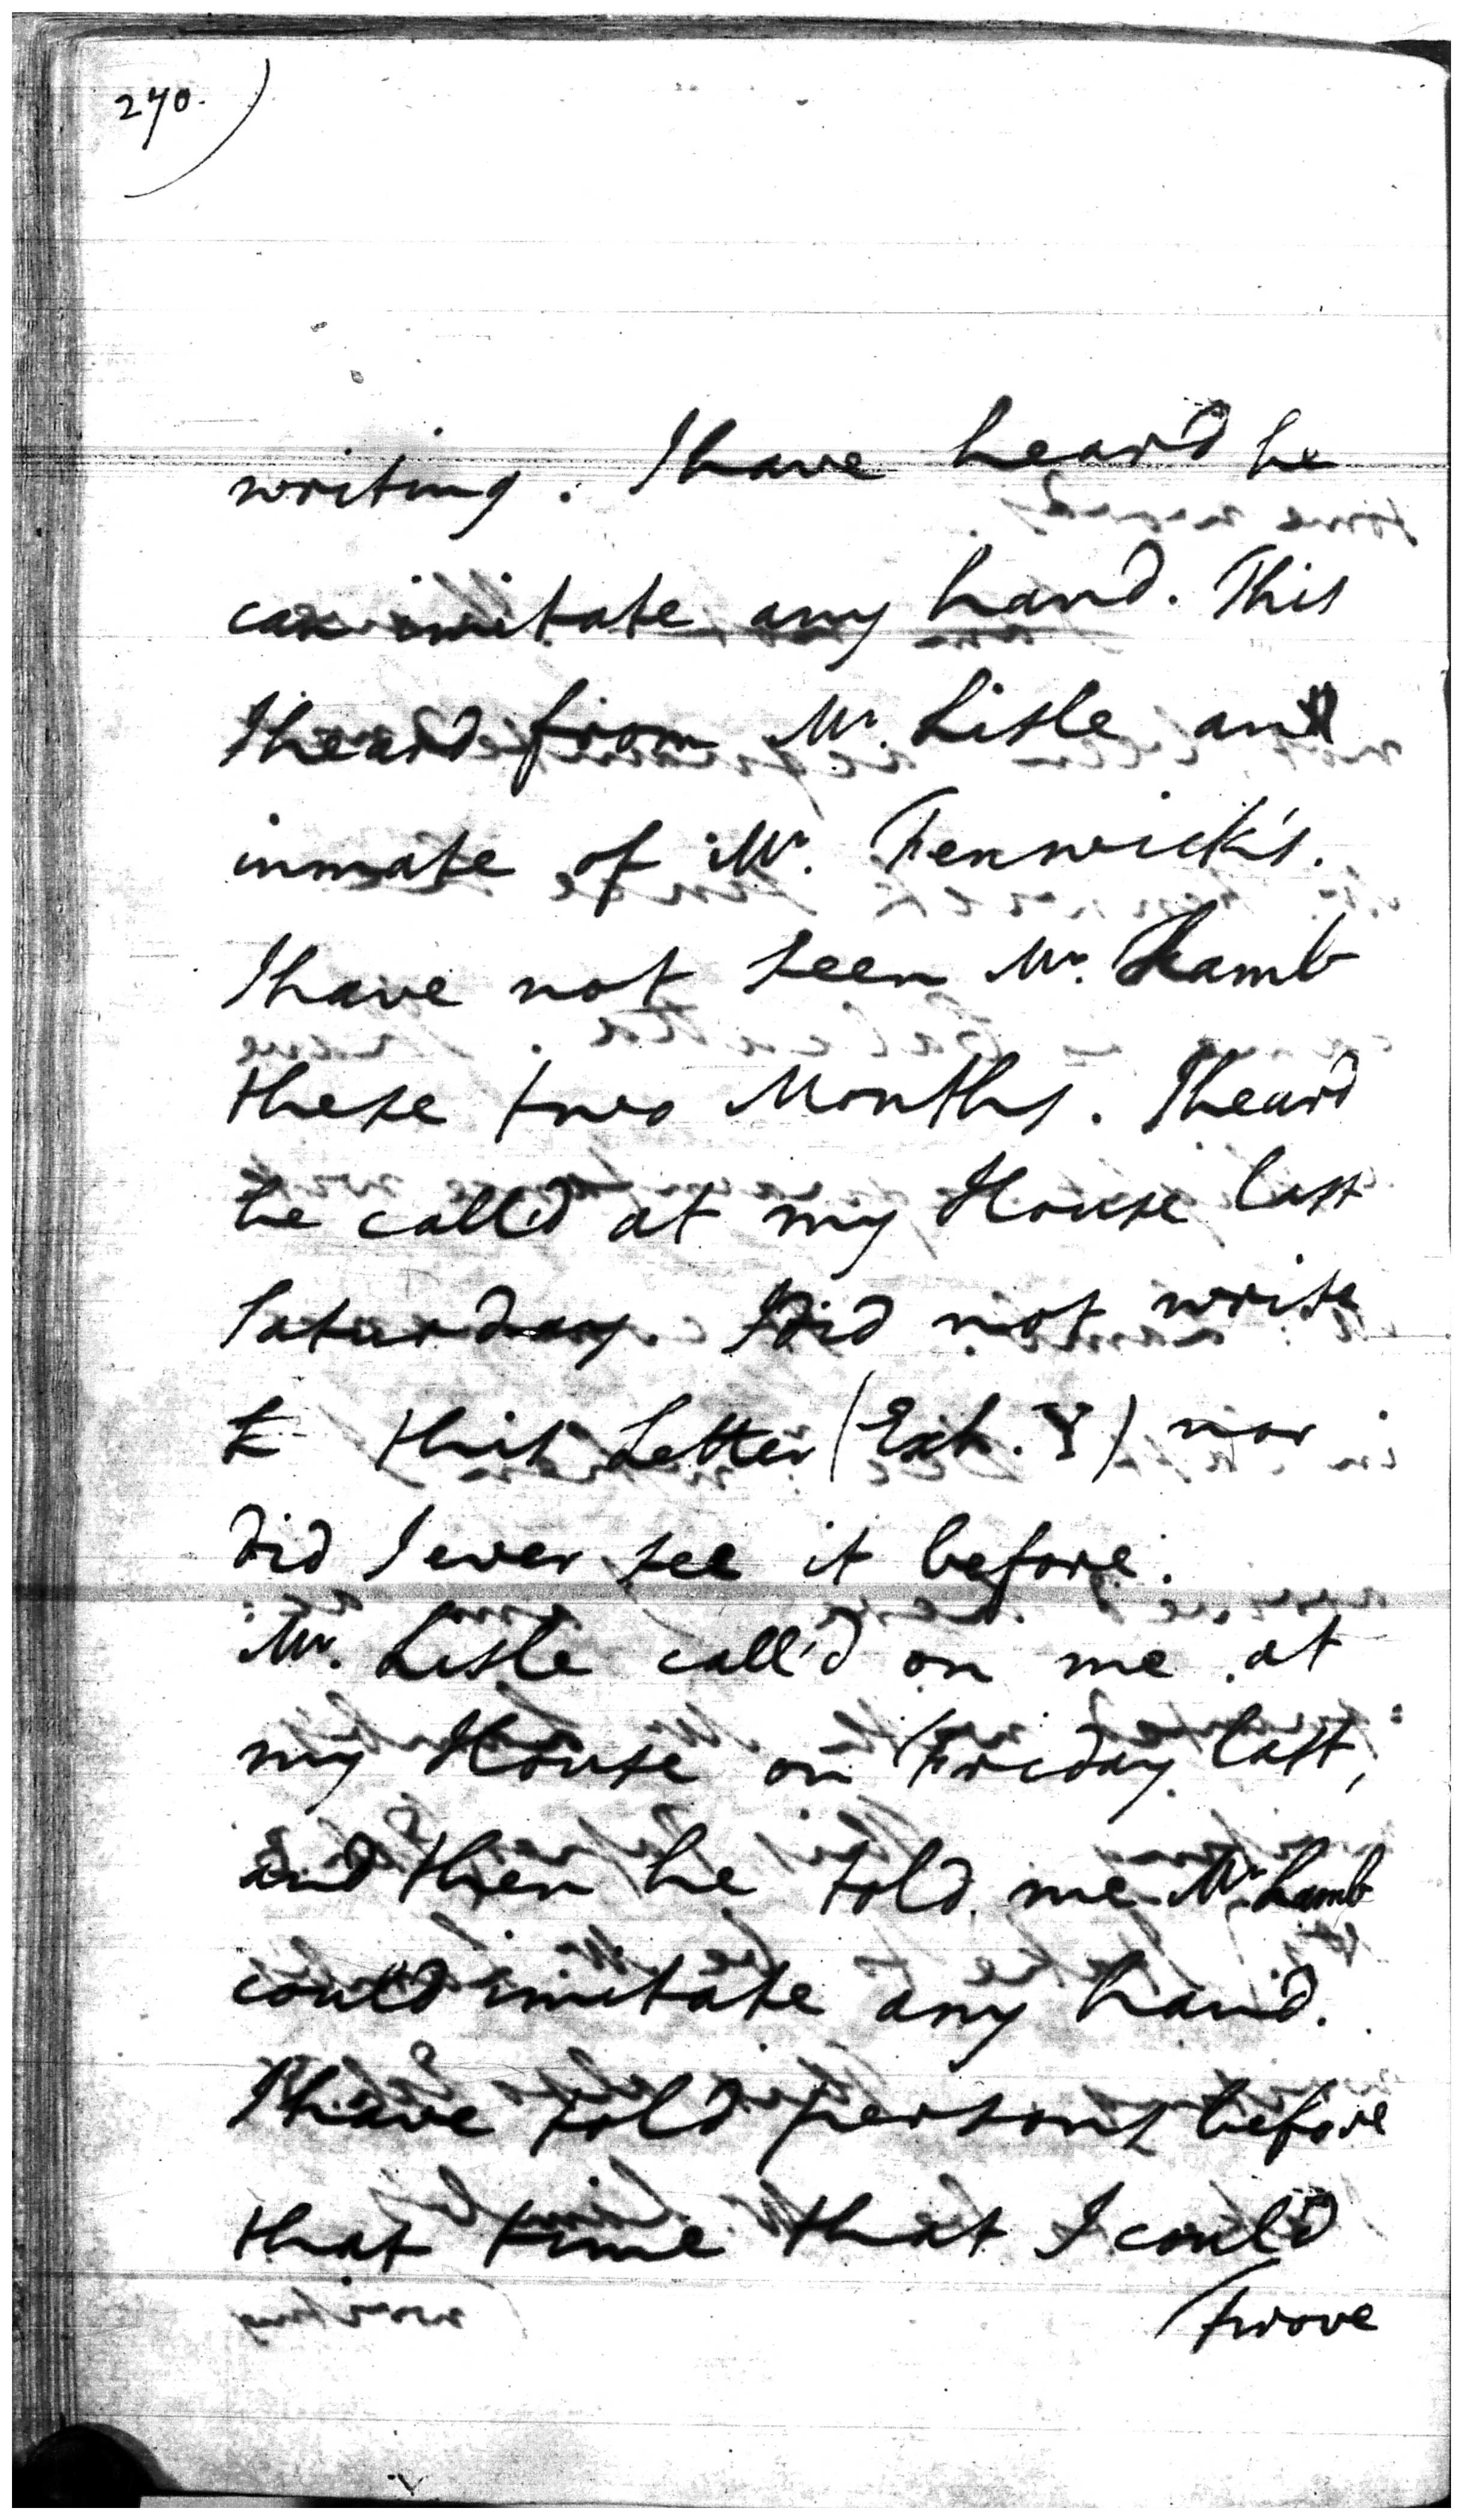 270.
writing. I have heard he
can imitate any hand. This
I heard from Mr. Lisle and
inmate of Mr. Fenwick's.
I have not seen Mr. Lamb
these two Months. I heard
he call'd at my House last
Saturday I did not write
this Letter (Exh. ) nor
did I ever see it before.
Mr. Lisle call'd on me at
my House on Friday last,
and then he told me Mr. Lamb
could imitate any hand.
I have told persons before
that time that I could
prove